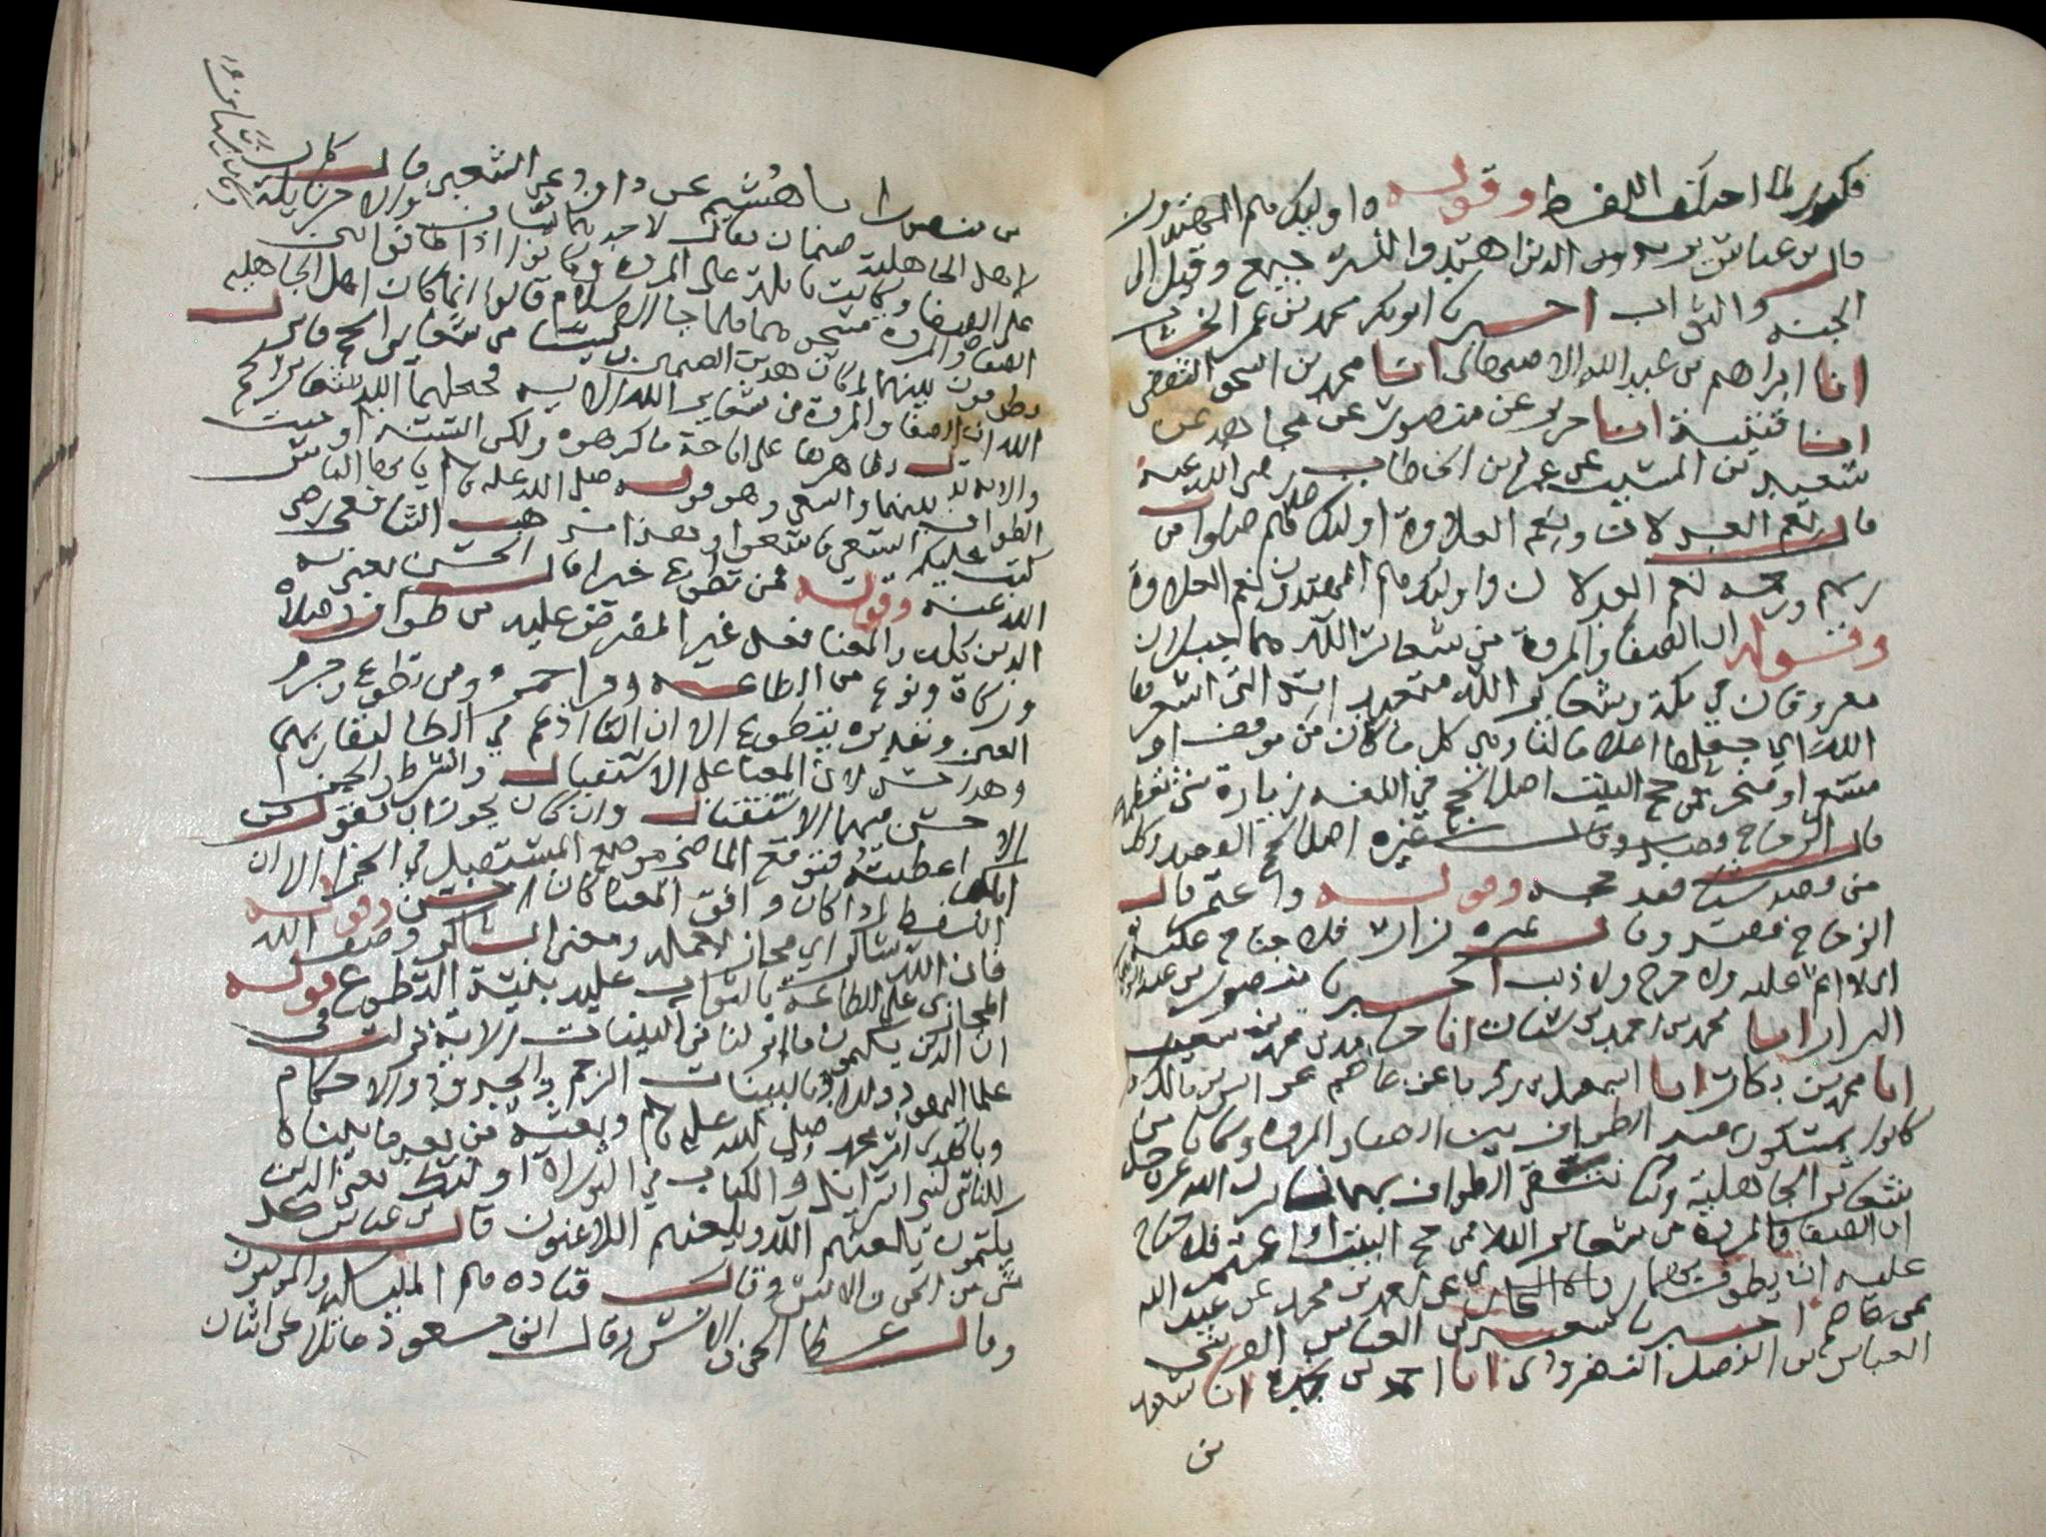 فكرر لما اختلف اللفظ وقوله واوليك هم المهتدون
قال بن عباس يريد الذين اهتدوا للسنه جميع وقيل الى
الجنه والثواب اخبرنا ابو بكر محمد بن عمر الخشاب
انا ابراهيم بن عبد الله الاصبهاني انا محمد بن اسحق الثقفي
انا قتيبة انا جرير عن منصور عن مجاهد عن
سعيد بن المسيب عن عمر بن الخطاب رضي الله عنه
قال نعم العدلان ونعم العلاوة اوليك عليهم صلوات من
ربهم ورحمه نعم العدلان واوليك هم المهتدون نعم العلاوة
وقوله ان الصفا والمروة من شعاير الله هما جبلان
معروفان في مكة وشعاير الله متعبداته التي اشعرها
الله اي جعلها اعلاما لنا وهي كل ما كان من موقف او
مسعى او منحر فمن حج البيت اصل الحج في اللغه زيارة شي تعظمه
قال الزجاج وقال غيره اصل الحج القصد وكل
من قصد شيا فقد حجه وقوله واعتمر قال
الزجاج قصد وقال غيره زار فلا جناح عليه
اي لا اثم عليه ولا حرج ولا ذنب اخبرنا منصور بن عبد الوهاب
البزار انا محمد بن احمد بن سنان انا حامد بن محمد بن شعيب
انا محمد بن بكار انا اسمعيل بن زكريا عن عاصم عن انس بن مالك
كانوا يمسكون عن الطواف بين الصفا والمروه وكانا من
شعاير الجاهلية وكنا نتقي الطواف بهما فانزل الله عز وجل
ان الصفا والمروة من شعاير الله فمن حج البيت او اعتمر فلا جناح
عليه ان يطوف بهما رواه البخاري عن احمد بن محمد عن عبد الله
عن عاصم اخبرنا سعيد بن العباس القرشي
العباس بن الفضل النضروي انا احمد بن نجدة انا سعيد
بن
بن منصور انا هشيم عن داود عن الشعبي قال كان
لاهل الجاهلية صنمان يقال لاحدهما يساف والاخر نايلة
وكان يساف
على الصفا وكانت نايلة على المروه وكانوا اذا طافوا بين
الصفا والمروة مسحوهما فلما جا الاسلام قالوا انما كان اهل الجاهليه
يطوفون بينهما لمكان هذين الصنمين وليسا من شعاير الحج فانزل
الله ان الصفا والمروة من شعاير الله الايه فجعلهما الله من شعاير الحج
والايه تدل بظاهرها على اباحة ما كرهوه ولكن السنه اوجبت
الطواف بينهما والسعي وهو قوله صلى الله عليه يا ايها الناس
كتب عليكم السعي فاسعوا وهذا مذهب الشافعي رضي
الله عنه وقوله فمن تطوع خيرا قال الحسن يعني به
الدين كله والمعنا فعل غير المفترض عليه من طواف وصلاة
وزكاة ونوع من الطاعه وقرا حمزة ومن تطوع وجزم
العين وتقديره يتطوع الا ان التا ادغم في الطا لتقاربهما
وهذا حسن لان المعنا على الاستقبال والشرط والجزا
الاحسن فيهما الاستقبال وان كان يجوز ان تقول من
اتاك اعطيته فتوقع الماضي موضع المستقبل في الجزا الا ان
اللفظ اذا كان وافق المعنا كان احسن وقوله
فان الله شاكر اي مجاز لاعماله ومعنى الشاكر وصف الله
المجازي على الطاعة بالثواب عليم بنية التطوع قوله
ان الذين يكتمون ما انزلنا من البينات الاية نزلت في
علما اليهود واراد بالبينات الرجم والحدود والاحكام
وبالهدى امر محمد صلى الله عليه وبعثه من بعد ما بيناه
للناس لبني اسرايل في الكتاب في التوراة اوليك يعني الذين
يكتمون يلعنهم الله ويلعنهم اللاعنون قال بن عباس كل
شي من الجن والانس وقال قتاده هم المليكه والمومنون
وقال عطا الجن والانس وقال ابن مسعود ما تلاعن اثنان